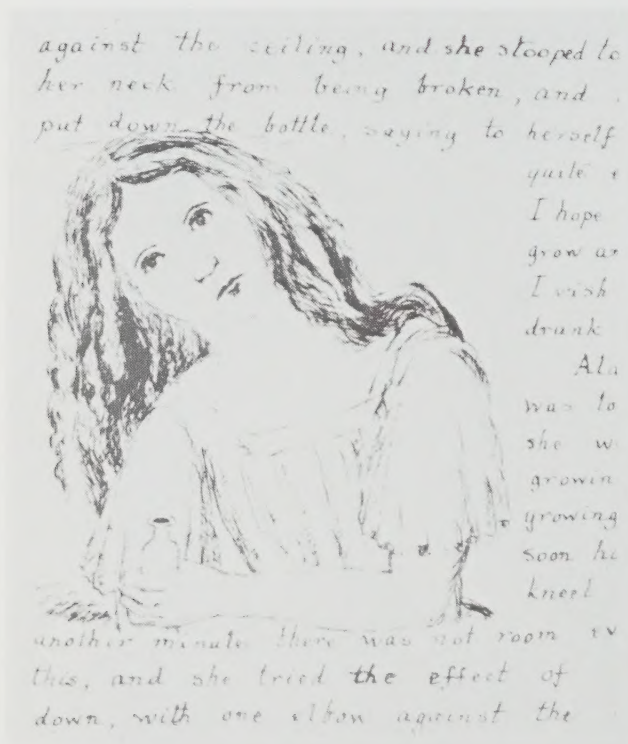 against the ceiling, and she stooped to
her neck from being broken, and
put down the bottle, saying to herself
quite
I hope
grow
I wish
drank
was
she
soon
kneel
another minute there was not room
this, and she tried the effect of
down, with one elbow against the